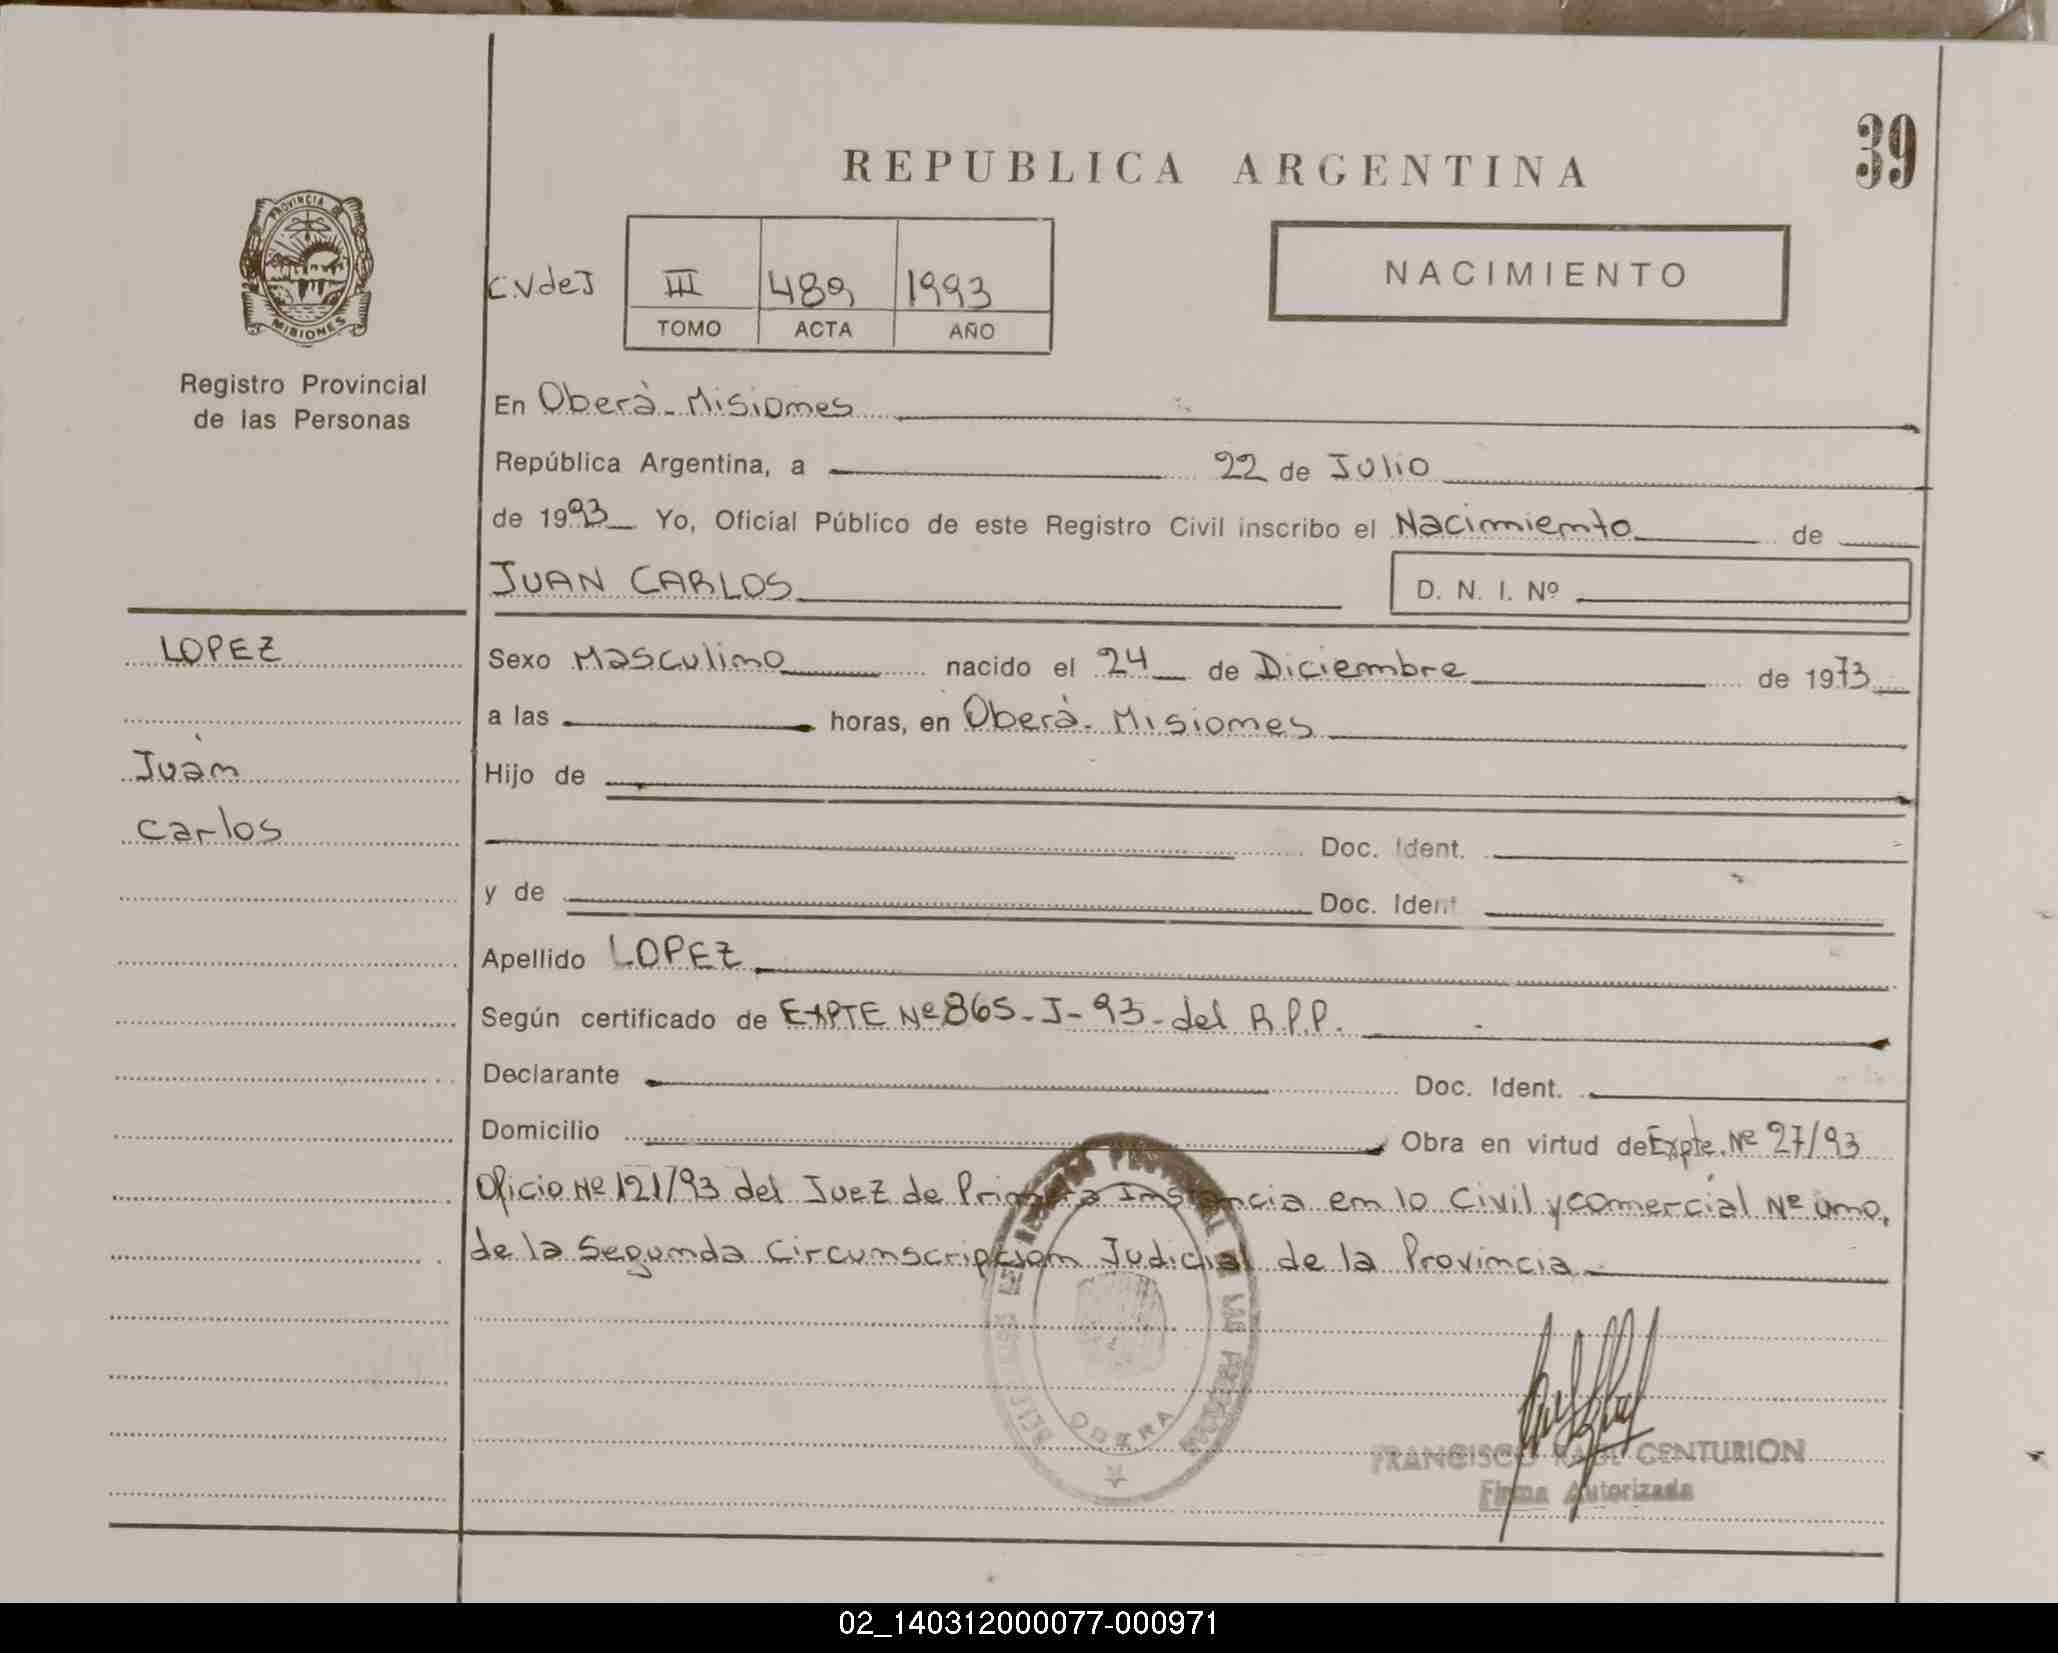 39
REPUBLICA ARGENTINA
PROVINCIA DE
MISIONES
Registro Provincial
de las Personas
C.V de J
III 489 1993
TOMO ACTA AÑO
NACIMIENTO
En Oberà - Misiones
República Argentina, a 22 de Julio
de 1993 Yo, Oficial Público de este Registro Civil inscribo el Nacimiento de
JUAN CARLOS D. N. I. Nº
LOPEZ
Juan
Carlos
Sexo Masculino nacido el 24 de Diciembre de 1973
a las horas, en Oberà - Misiones
Hijo de
Doc. Ident.
y de Doc. Ident
Apellido LOPEZ
Según certificado de EXPTE Nº 865-J-93-del R.P.P.
Declarante Doc. Ident.
Domicilio Obra en virtud de Expte. Nº 27/93
Oficio Nº 121/93 del Juez de Primera Instancia en lo Civil y comercial Nº uno,
de la Segunda Circunscripcion Judicial de la Provincia
OBERA
FRANCISCO RAUL CENTURION
Firma Autorizada
02_140312000077-000971